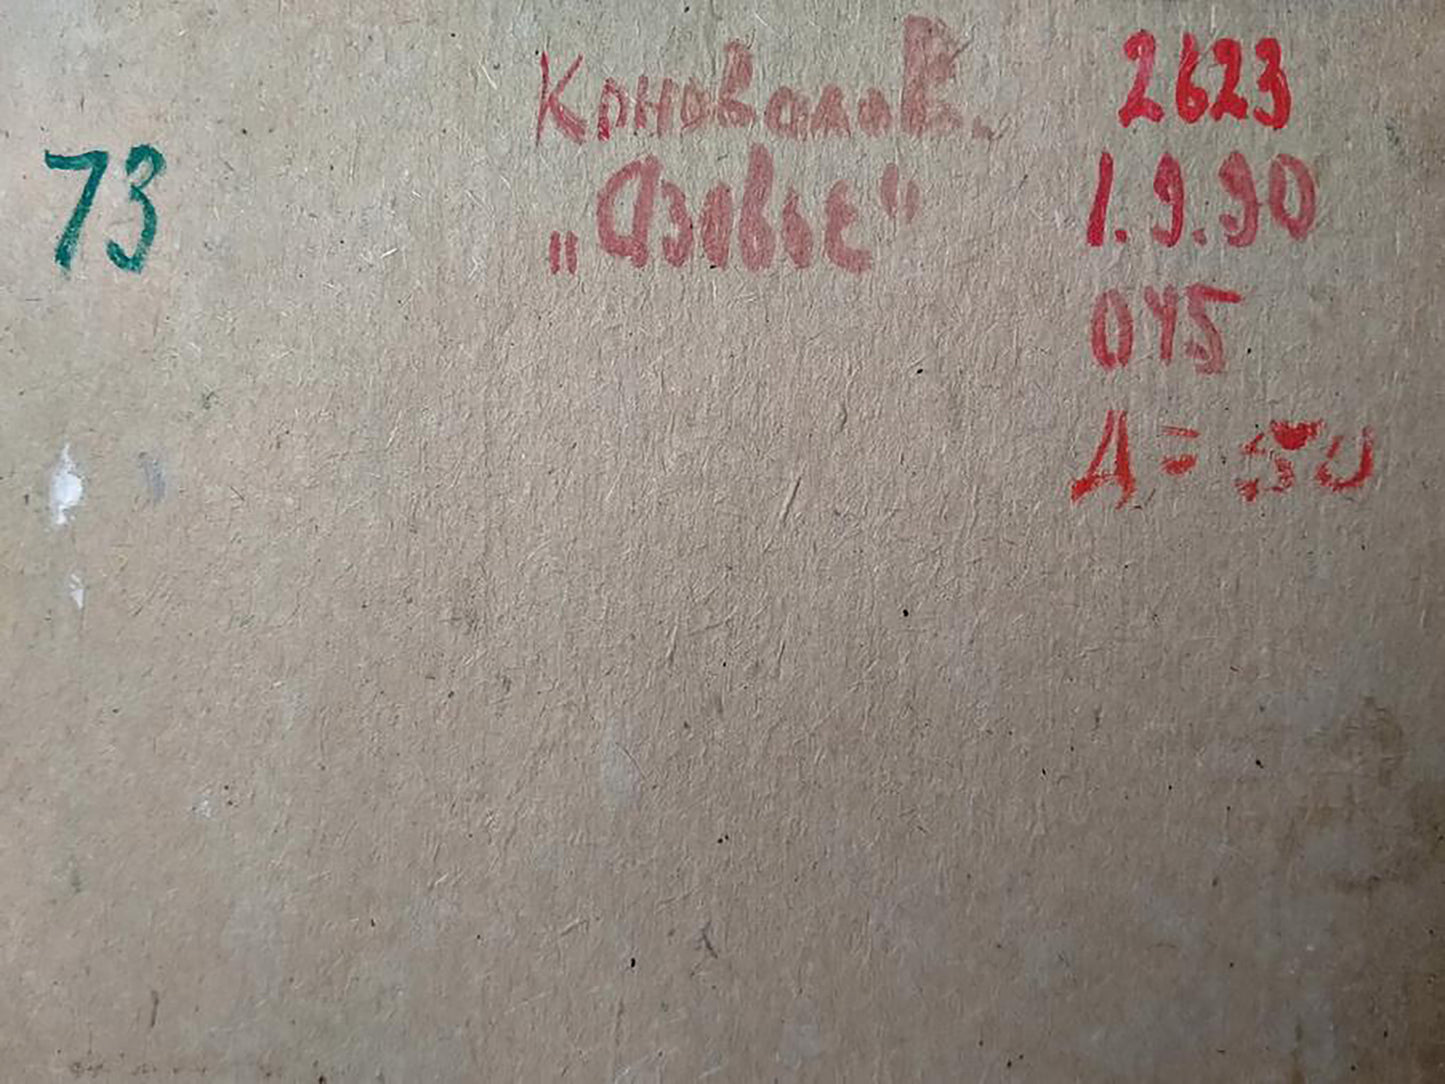 73
Коновалов.
„Азовье"
2623
1.9.90
045
Д = 50